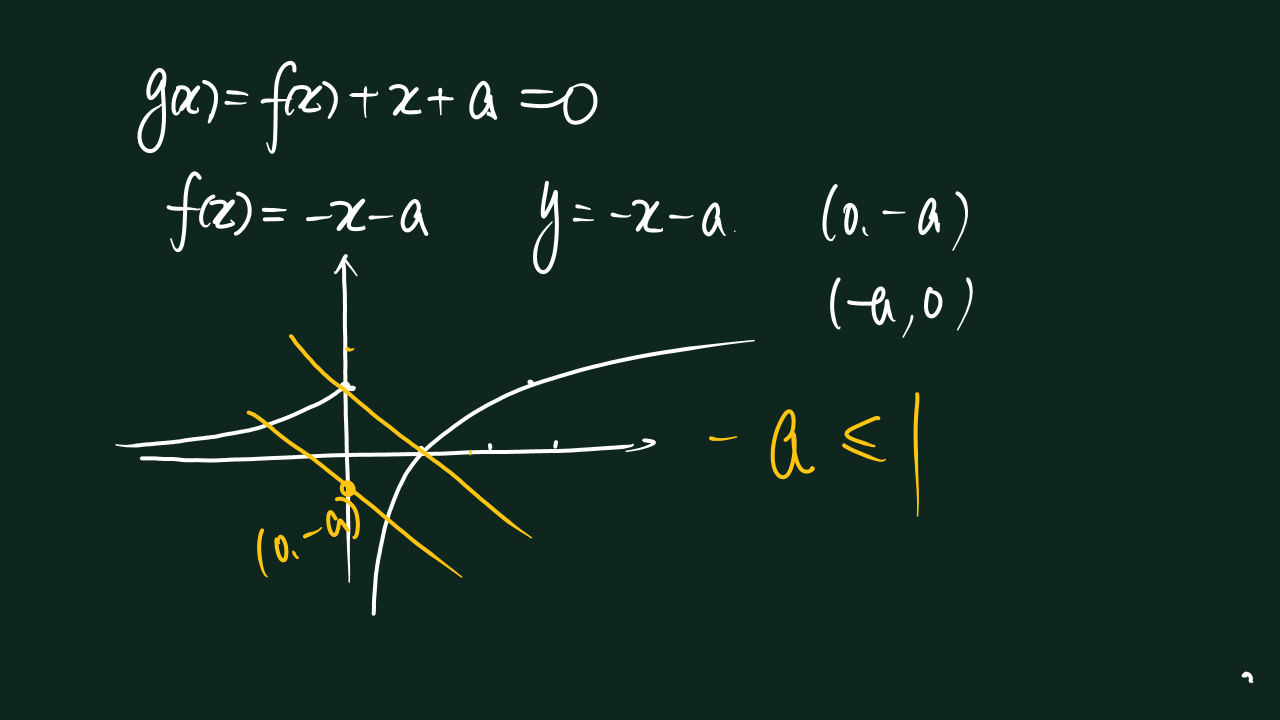 g(x)=f(x)+x+a=0
f(x)=-x-a y=-x-a. (0.-a)
(-a,0)
-a≤1
(0.-a)